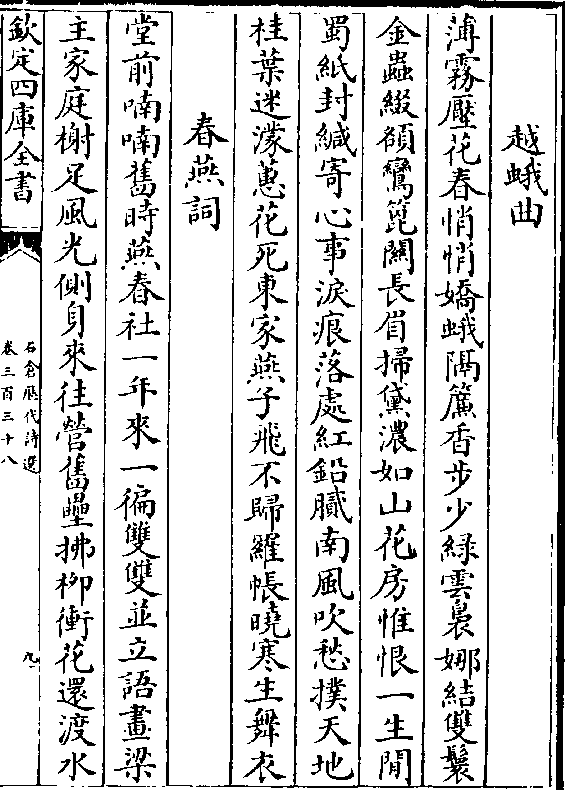 越蛾曲
薄霧壓花春悄悄嬌蛾隔簾香步少綠雲裊娜結雙鬟
金蟲綴額鸞篦闗長眉掃黛濃如山花房惟恨一生閒
蜀紙封緘寄心事淚痕落處紅鉛膩南風吹愁撲天地
桂葉迷濛蕙花死東家燕子飛不歸羅帳曉寒生舞衣
春燕詞
堂前喃喃舊時燕春社一年來一徧雙雙並立語畫梁
主家庭榭足風光側身來往營舊壘拂栁衝花還渡水
欽定四庫全書
石倉歴代詩選
卷三百三十八
九